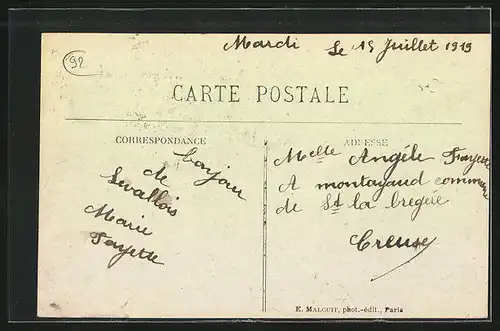 92
Mardi le 15 Juillet 1919
CARTE POSTALE
CORRESPONDANCE
ADRESSE
bonjour
de
Levallois
Marie
Fayette
Melle Angéle Fayette
A montayaud commune
de St la bregére
Creuse
E. MALCUIT, phot.-édit., Paris